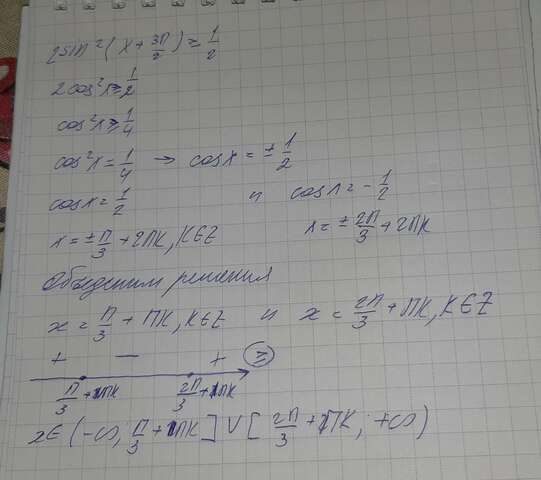 2sin²(x + 3π/2) ≥ 1/2
2cos²x ≥ 1/2
cos²x ≥ 1/4
cos²x = 1/4 → cosx = ± 1/2
cosx = 1/2 и cosx = - 1/2
x = ± π/3 + 2πk, k∈Z x = ± 2π/3 + 2πk
Объединим решения
x = π/3 + πk, k∈Z и x = 2π/3 + πk, k∈Z
+ − + ≥
π/3 + πk 2π/3 + πk
x∈ (-∞, π/3 + πk] ∪ [2π/3 + πk; +∞)